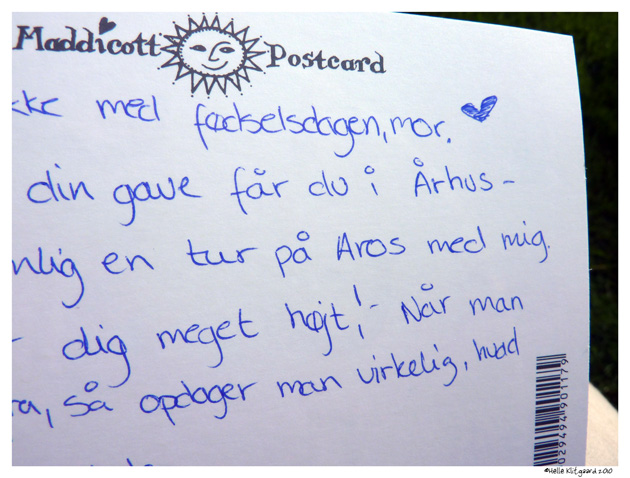 Maddicott Postcard
kke med fødselsdagen, mor.
din gave får du i Århus-
nlig en tur på Aros med mig.
dig meget højt! - Når man
ra, så opdager man virkelig, hvad
029494901179
©Helle Klitgaard 2010